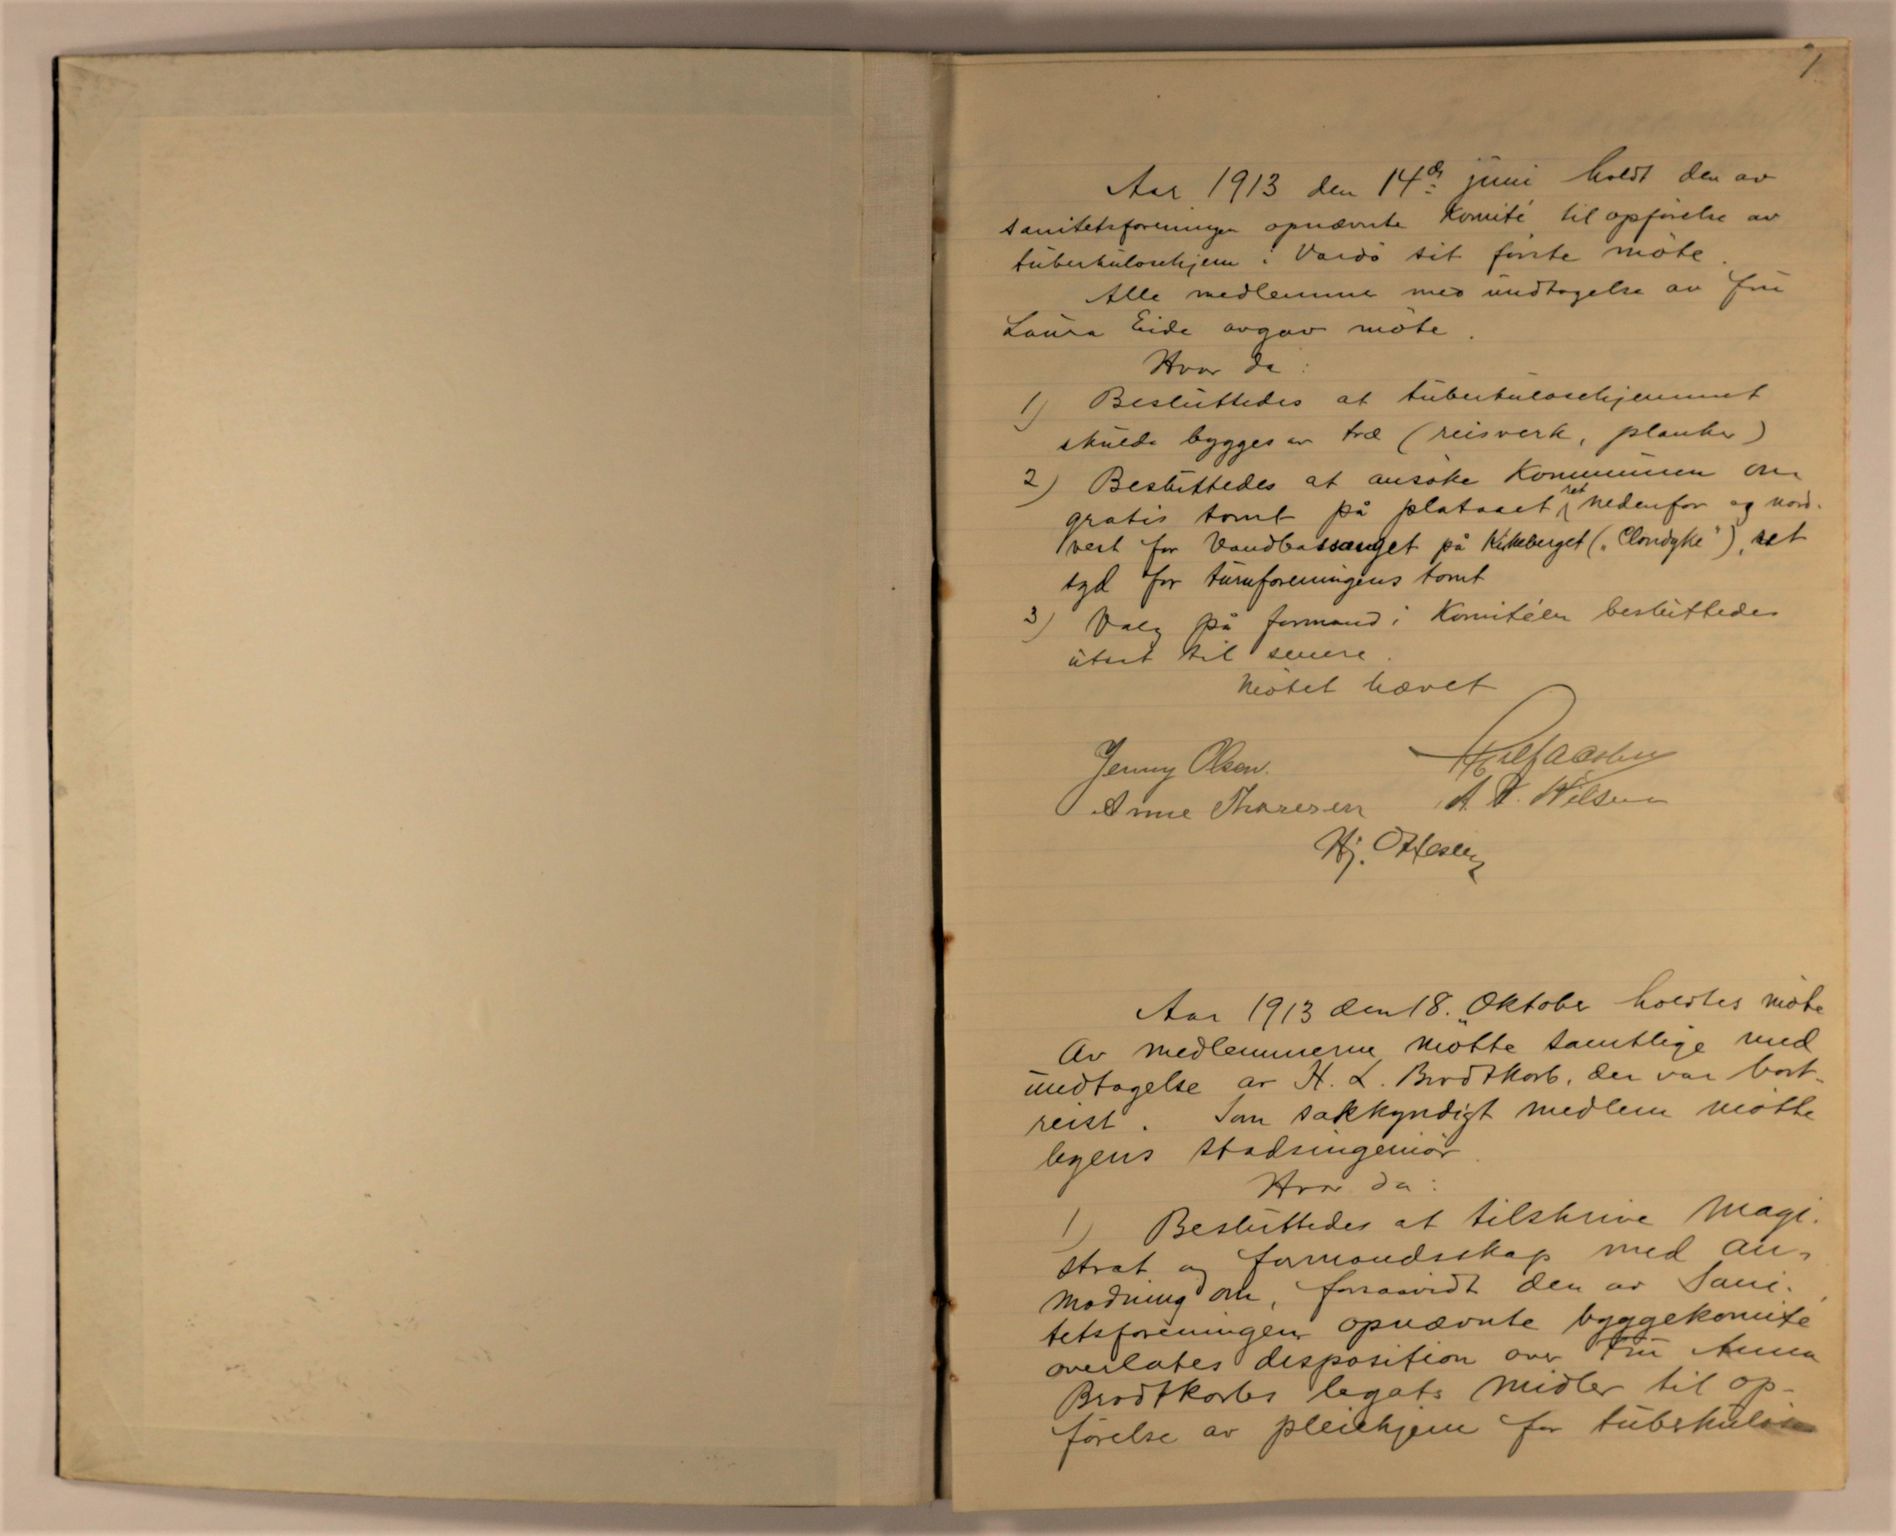 1
Aar 1913 den 14de juni holdt den av
sanitetsforeningen opnævnte Komité til opførelse av
tuberkulosehjem i Vardø sit første møte.
Alle medlemmer med undtagelse av fru
Laura Eide avgav møte.
Hvor da:
1) Besluttedes at tuberkulosehjemmet
skulde bygges av træ (reisverk, planker)
2) Besluttedes at ansøke Kommunen om
gratis tomt på plataaet ret nedenfor og nord-
vest for Vandbassænget på Kirkeberget („Clondyke"), ret
syd for turnforeningens tomt
3) Valg på formand i Komitéen besluttedes
utsat til senere.
Møtet hævet
Jenny Olsen.
Anne Thoresen
Hj.
Aar 1913 den 18. Oktober holdtes møte
Av medlemmerne møtte samtlige med
undtagelse av H. L. Brodtkorb, der var bort-
reist. Som sakkyndigt medlem møtte
byens stadsingeniør.
Hvor da:
1) Besluttedes at tilskrive Magi-
strat og formandsskap med an-
modning om, forsaavidt den av Sani-
tetsforeningen opnævnte byggekomité
overlates disposition over Fru Anna
Brodtkorbs legats midler til op-
førelse av pleiehjem for tuberkuløse